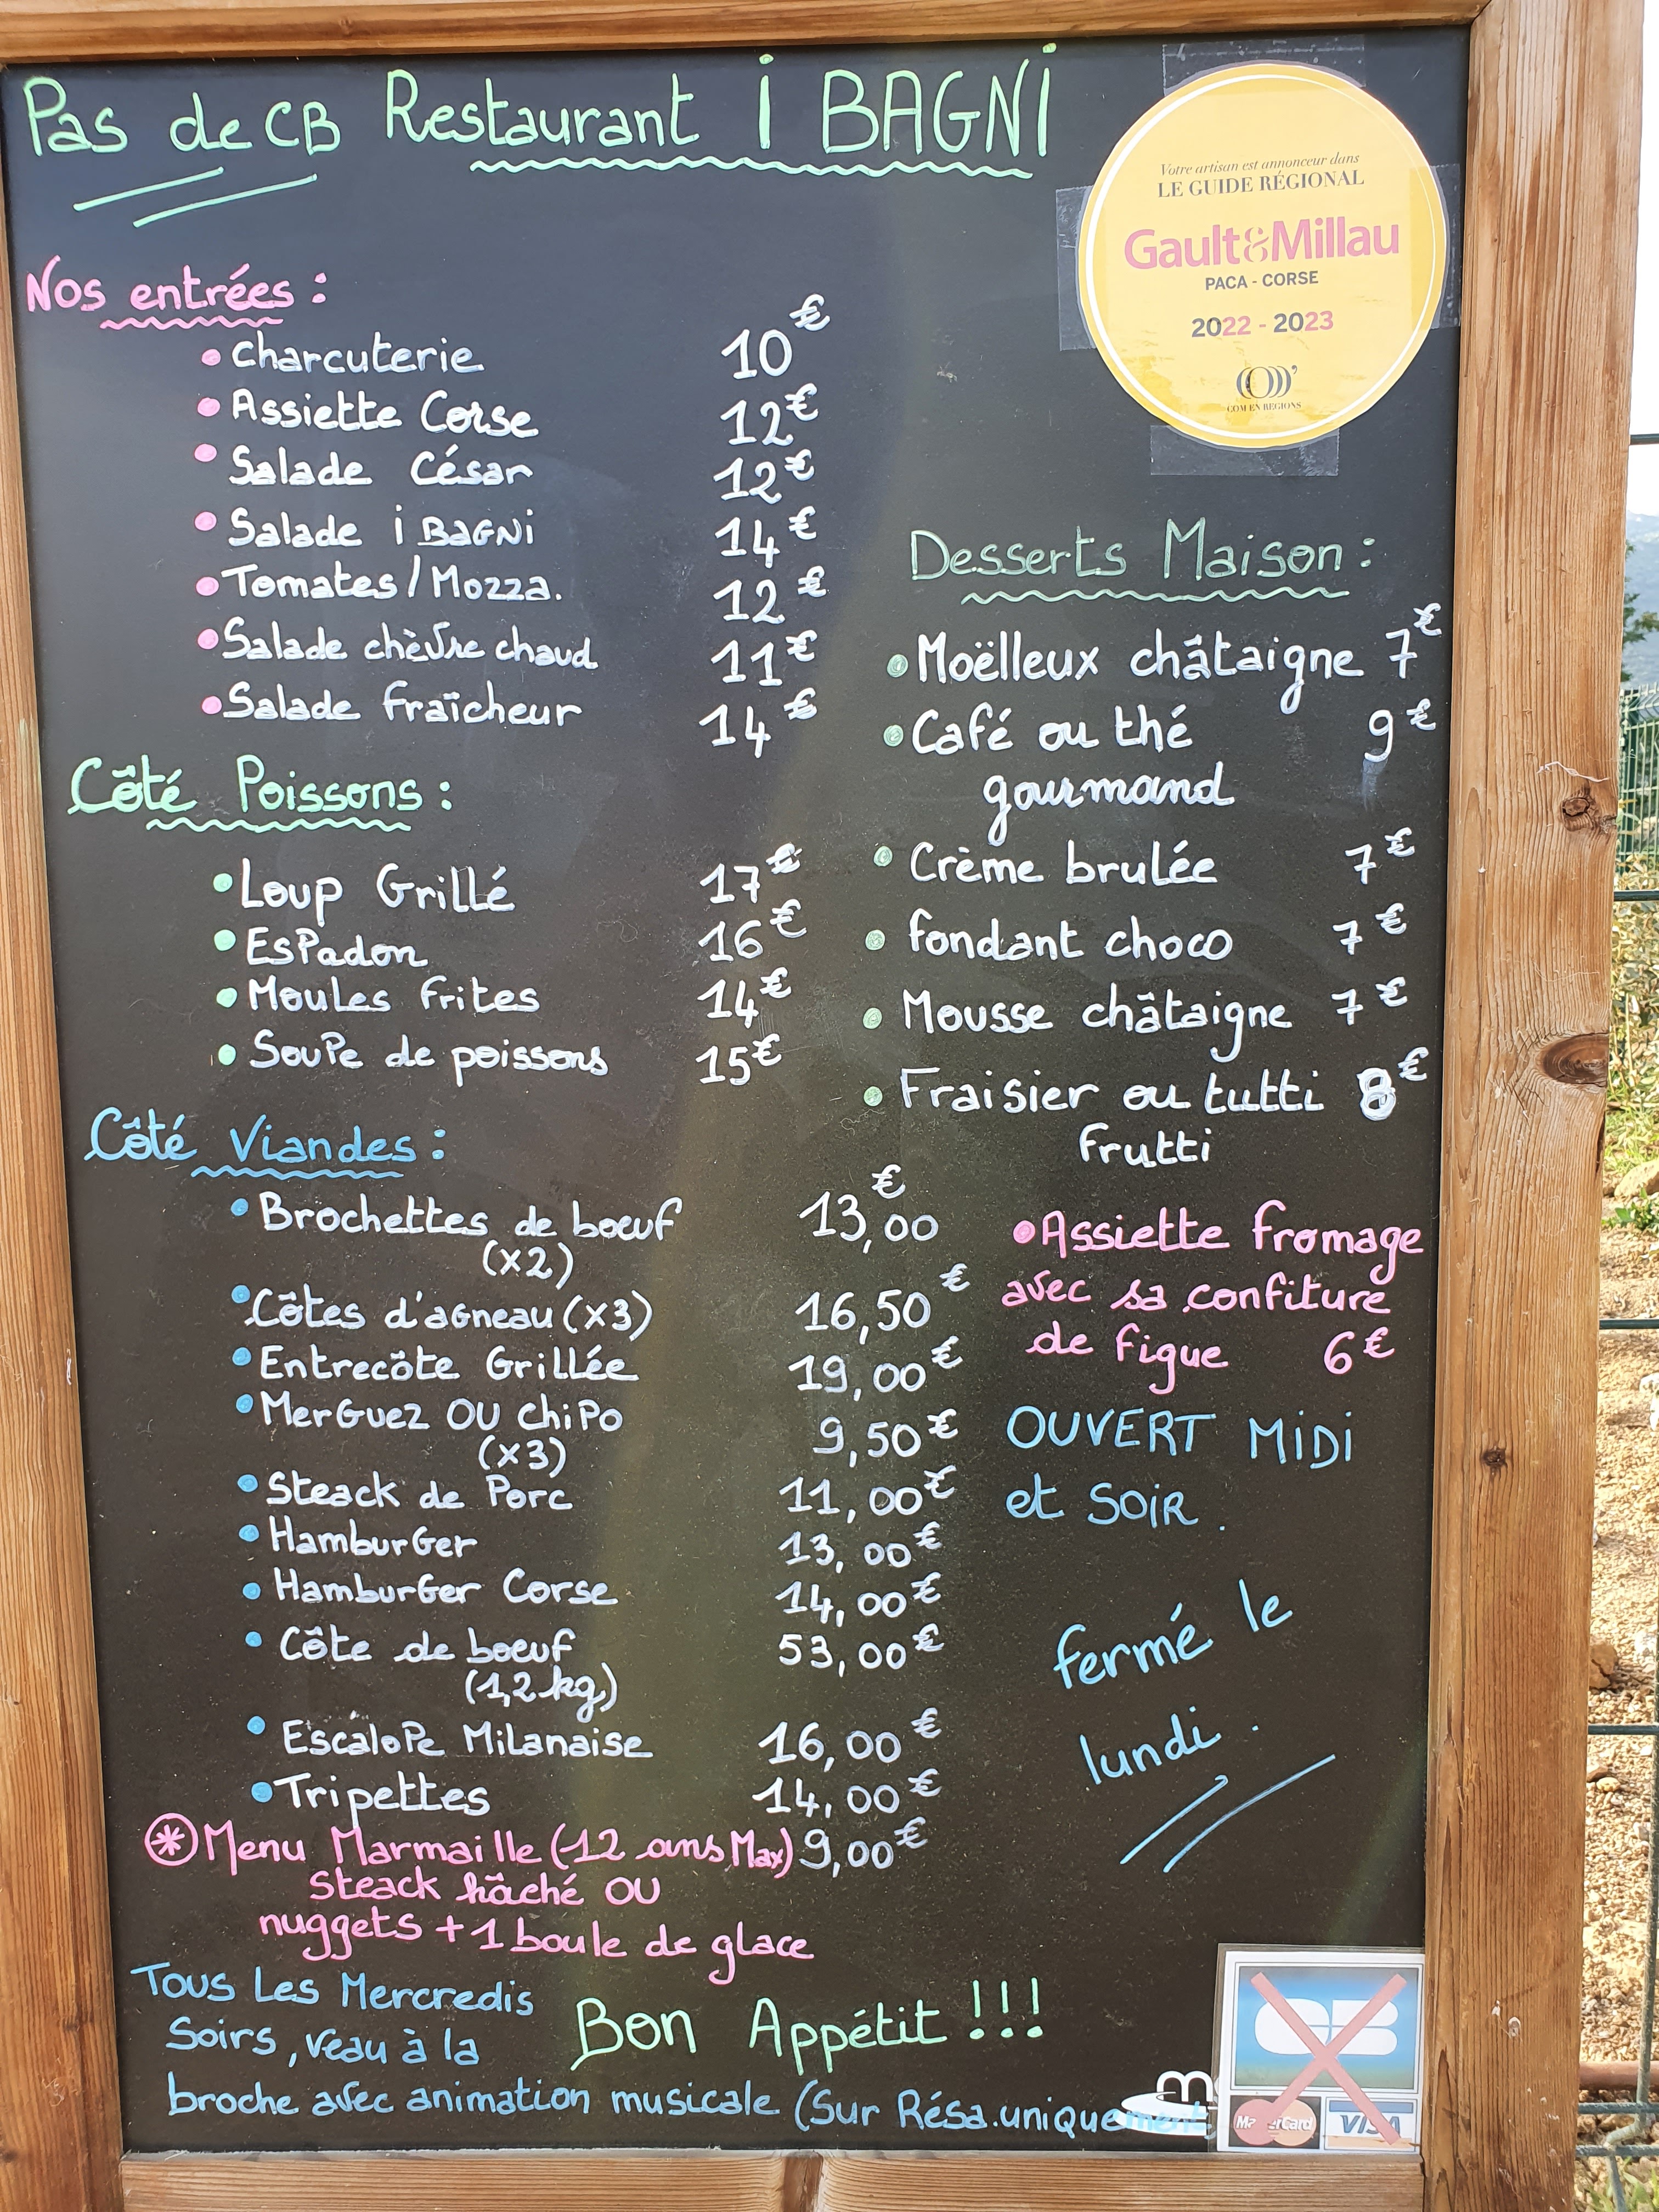 Pas de CB Restaurant i BAGNi
Votre artisan est annonceur dans
LE GUIDE RÉGIONAL
Gault&Millau
PACA - CORSE
2022 - 2023
COM EN REGIONS
Nos entrées :
• Charcuterie 10€
• Assiette Corse 12€
• Salade César 12€
• Salade i BAGNi 14€
• Tomates/Mozza. 12€
• Salade chèvre chaud 11€
• Salade fraîcheur 14€
Côté Poissons :
• Loup Grillé 17€
• EsPadon 16€
• Moules frites 14€
• SouPe de poissons 15€
Côté Viandes :
• Brochettes de boeuf 13,00€
(x2)
• Côtes d'agneau (x3) 16,50€
• Entrecôte Grillée 19,00€
• MerGuez OU ChiPo 9,50€
(x3)
• Steack de Porc 11,00€
• HamburGer 13,00€
• HamburGer Corse 14,00€
• Côte de boeuf 53,00€
(1,2 kg)
• EscaloPe Milanaise 16,00€
• Tripettes 14,00€
* Menu Marmaille (-12 ans Max) 9,00€
Steack hâché OU
nuggets + 1 boule de glace
Desserts Maison :
• Moëlleux châtaigne 7€
• Café ou thé 9€
gourmand
• Crème brulée 7€
• fondant choco 7€
• Mousse châtaigne 7€
• Fraisier ou tutti 8€
frutti
• Assiette fromage
avec sa confiture
de figue 6€
OUVERT MiDi
et SOiR.
fermé le
lundi.
Tous Les Mercredis
Soirs, veau à la
broche avec animation musicale (Sur Résa.uniquement
Bon Appétit !!!
CB
MasterCard
VISA